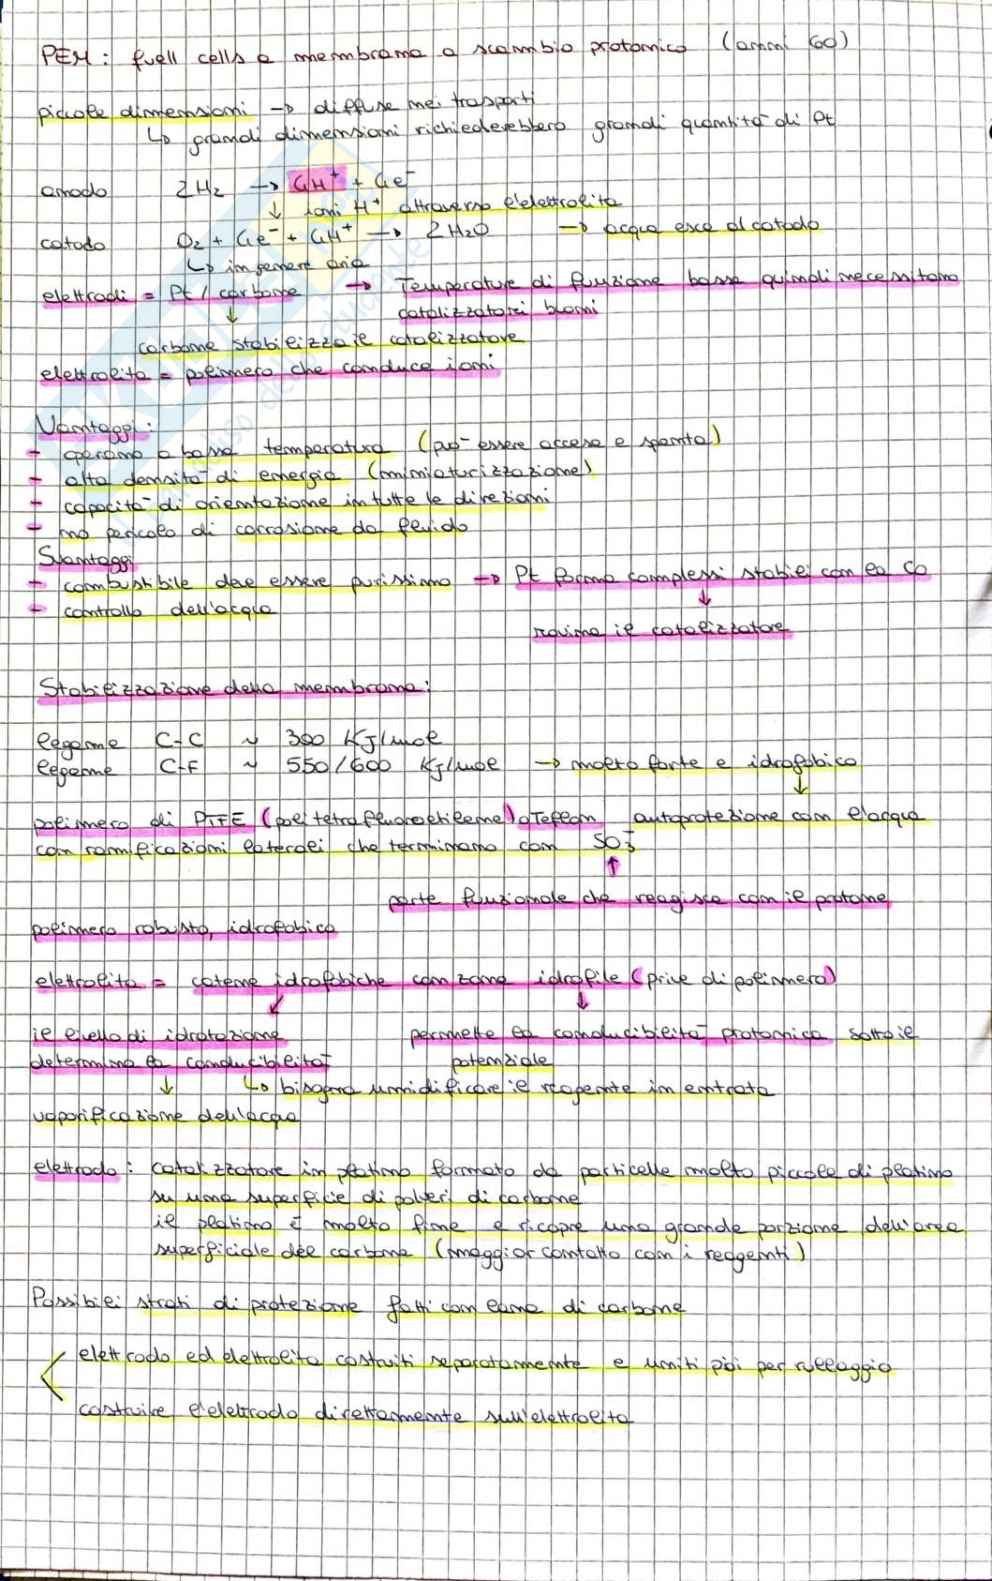 PEM: fuell cells a membrana a scambio protonico (anni 60)
piccole dimensioni → diffuse nei trasporti
↳ grandi dimensioni richiederebbero grandi quantità di Pt
anodo 2H₂ → 4H⁺ + 4e⁻
↓ ioni H⁺ attraverso l'elettrolita
catodo O₂ + 4e⁻ + 4H⁺ → 2H₂O → acqua esce al catodo
↳ in genere aria
elettrodi = Pt / carbone → Temperature di funzione basse quindi necessitano
↓ catalizzatori buoni
carbone stabilizza il catalizzatore
elettrolita = polimero che conduce ioni
Vantaggi:
- operano a bassa temperatura (può essere accesa e spenta)
- alta densità di energia (miniaturizzazione)
- capacità di orientazione in tutte le direzioni
- no pericolo di corrosione da fluido
Svantaggi
- combustibile deve essere purissimo → Pt forma complessi stabili con la CO
- controllo dell'acqua ↓
rovina il catalizzatore
Stabilizzazione della membrana:
legame C-C ~ 300 KJ/mol
legame C-F ~ 550/600 KJ/mol → molto forte e idrofobico
↓
polimero di PTFE (politetrafluoroetilene) o Teflon autoprotezione con l'acqua
con ramificazioni laterali che terminano con SO₃⁻
↑
parte funzionale che reagisce con il protone
polimero robusto, idrofobico
elettrolita = catene idrofobiche con zone idrofile (prive di polimero)
il livello di idratazione permette la conducibilità protonica sotto il
determina la conducibilità potenziale
↓ ↳ bisogna umidificare il reagente in entrata
vaporificazione dell'acqua
elettrodo: catalizzatore in platino formato da particelle molto piccole di platino
su una superficie di polveri di carbone
il platino è molto fine e ricopre una grande porzione dell'area
superficiale del carbone (maggior contatto con i reagenti)
Possibili strati di protezione fatti con lana di carbone
elettrodo ed elettrolita costruiti separatamente e uniti poi per rullaggio
<
costruire l'elettrodo direttamente sull'elettrolita